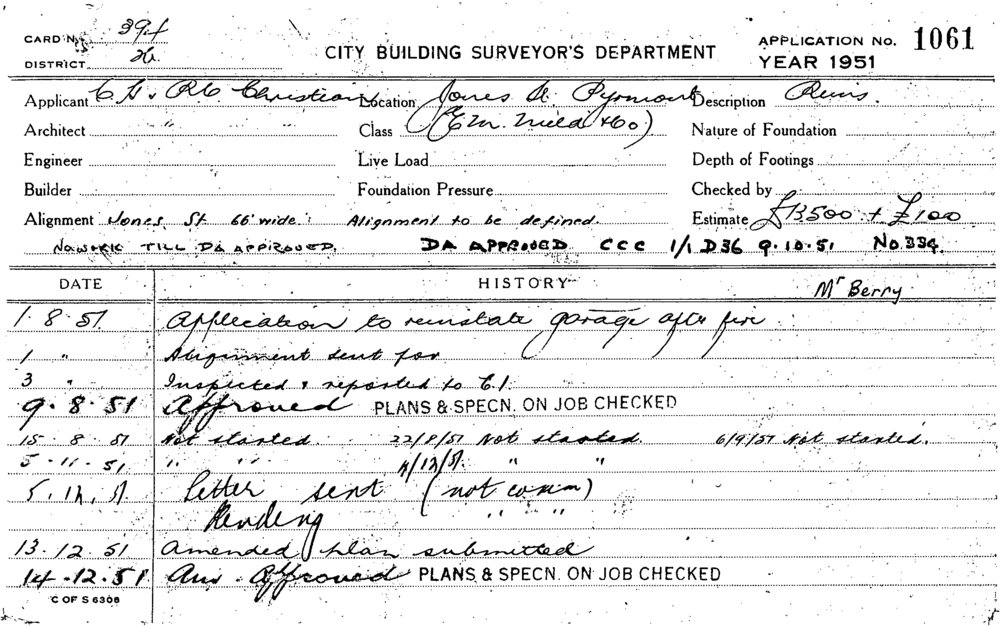 CARD No. 394
CITY BUILDING SURVEYOR'S DEPARTMENT
APPLICATION No. 1061
DISTRICT
YEAR 1951
Applicant C. G. & Christian Location Jones St Pyrmont Description Reins.
Architect " Class (E.M. & Co) Nature of Foundation
Engineer Live Load Depth of Footings
Builder Foundation Pressure Checked by
Alignment Jones St 66' wide. Alignment to be defined. Estimate £13500 + £100
No work TILL DA APPROVED. DA APPROVED CCC 1/1 D36 9.10.51 No.334.
DATE HISTORY Mr Berry
1.8.51 Application to reinstate garage after fire
1 " Alignment sent for
3 " Inspected & reported to C.I.
9.8.51 Approved PLANS & SPECN. ON JOB CHECKED
15 8 51 Not started 22/8/51 Not started. 6/9/51 Not started.
5.11.51 " " 4/12/51. " "
5.12.51 Letter sent (not comm)
Pending " " "
13.12.51 Amended plan submitted
14.12.51 Am. Approved PLANS & SPECN. ON JOB CHECKED
C OF S 6308